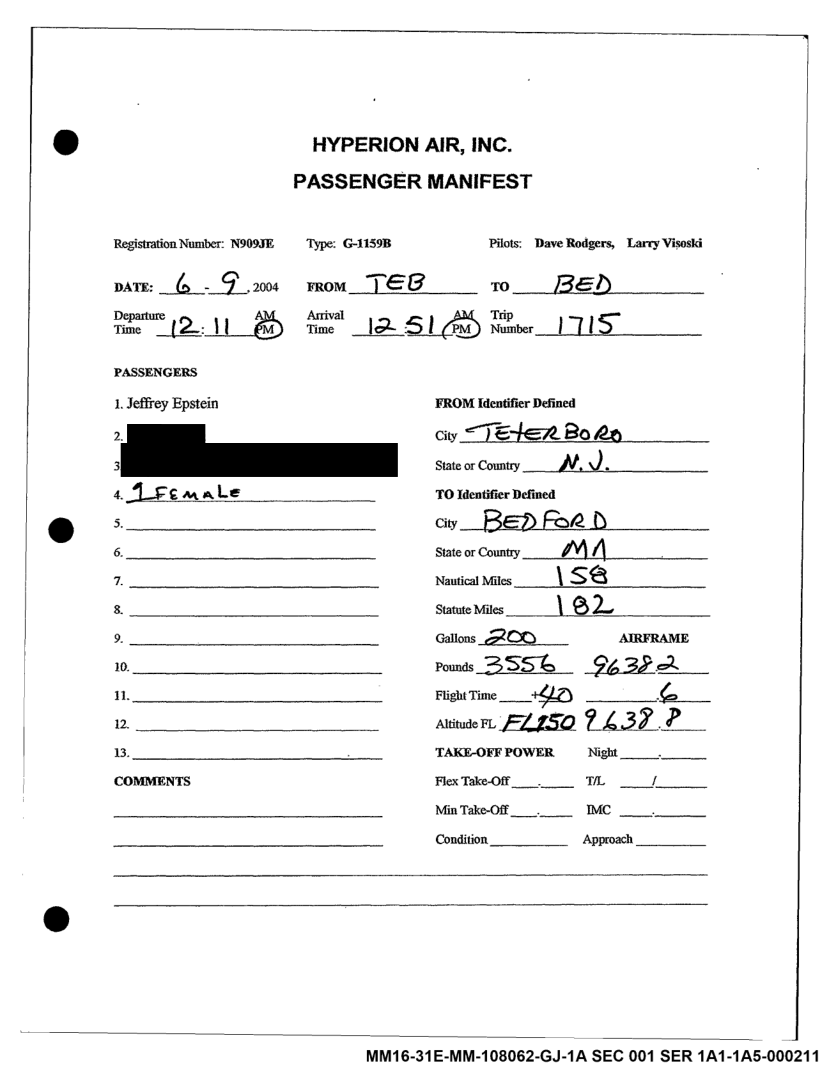 HYPERION AIR, INC.
PASSENGER MANIFEST
Registration Number: N909JE Type: G-1159B Pilots: Dave Rodgers, Larry Visoski
DATE: 6 - 9, 2004 FROM TEB TO BED
Departure Time 12:11 AM PM Arrival Time 12 51 AM PM Trip Number 1715
PASSENGERS
1. Jeffrey Epstein FROM Identifier Defined
2. City TETERBORO
3 State or Country N.J.
4. 1 FEMALE TO Identifier Defined
5. City BEDFORD
6. State or Country MA
7. Nautical Miles 158
8. Statute Miles 182
9. Gallons 200 AIRFRAME
10. Pounds 3556 9638 2
11. Flight Time +40 .6
12. Altitude FL FL250 9638.8
13. TAKE-OFF POWER Night .
COMMENTS Flex Take-Off . T/L /
Min Take-Off . IMC .
Condition Approach
MM16-31E-MM-108062-GJ-1A SEC 001 SER 1A1-1A5-000211